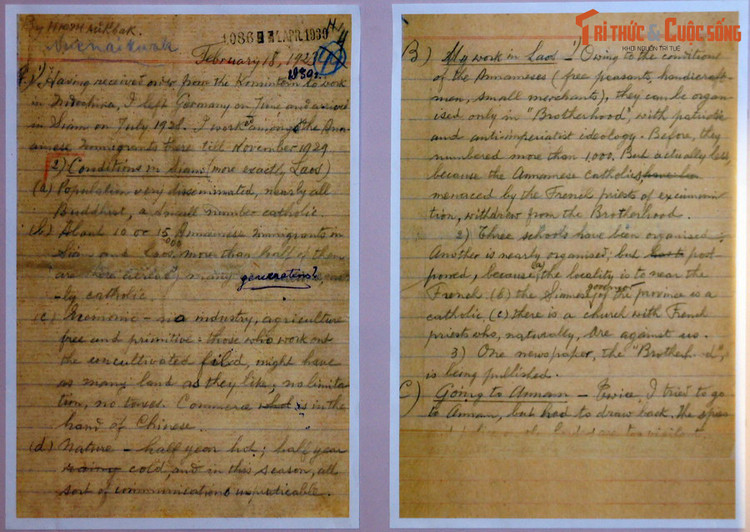 TRI THỨC & CUỘC SỐNG
KHƠI NGUỒN TRI THỨC
1 APR. 1930
February 18, 1923
1930
1) Having received order from the Komintern to work
in Indochina, I left Germany on June and arrived
in Siam on July 1928. I worked amongst the Anna-
mese immigrants there till November 1929
2) Conditions in Siam (more exactly Laos)
(a) Population very disseminated, nearly all
Buddhist, a small number catholic
(b) About 10 or 15,000 Annamese immigrants in
Siam and Laos, more than half of them
are there many generations?
-ly catholic.
(c) Economic - no industry, agriculture
free and primitive: those who work out
the uncultivated field, might have
as many land as they like; no limita-
tion, no taxes. Commerce is in the
hand of Chinese.
(d) Nature - half year hot; half year
cold, and in this season, all
sort of communications impracticable.
B) My work in Laos - 1) Owing to the conditions
of the Annameses (free peasants, handicraft-
men, small merchants), they can be organ-
ised only in "Brotherhood", with patriotic
and antiimperialist ideology. Before, they
numbered more than 1000. But actually less,
because the Annamese catholics
menaced by the French priests of excommunica-
tion, withdrew from the Brotherhood.
2) Three schools have been organised.
Another is nearly organised; but post
poned, because (a) the locality is to near the
French (b) the Siamese governor of the province is a
catholic, (c) there is a church with French
priests who, naturally, are against us.
3) One newspaper, the "Brotherhood",
is being published.
C) Going to Annam - Twice, I tried to go
to Annam, but had to draw back. The